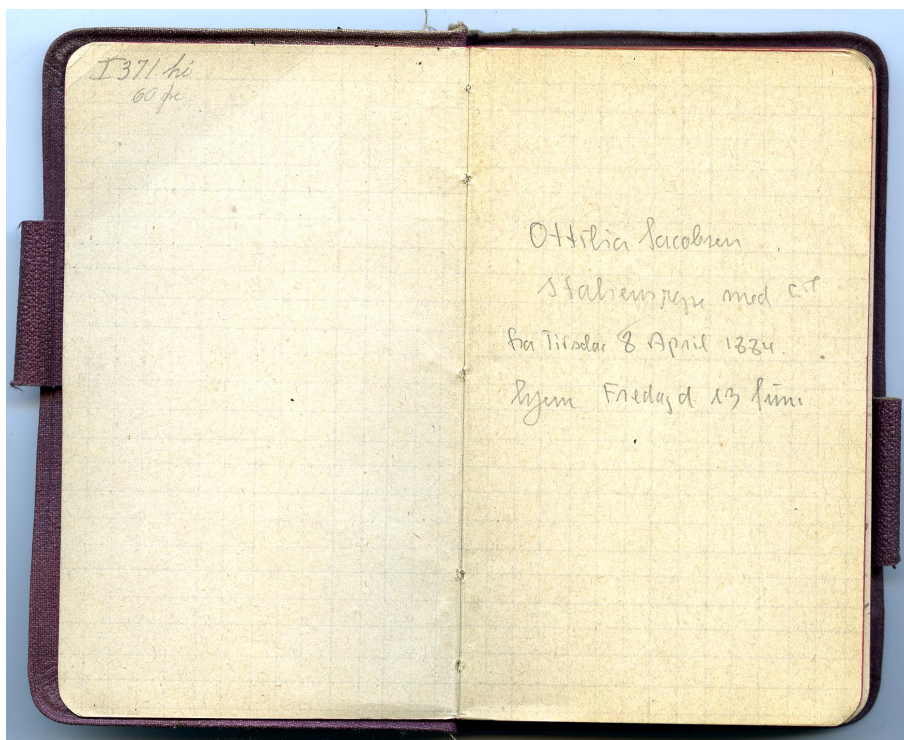 I 371 hi
60 fre
Ottilia Jacobsen
Italiensrejse med C.J
fra Tirsdag 8 April 1884.
hjem Fredag d 13 Juni